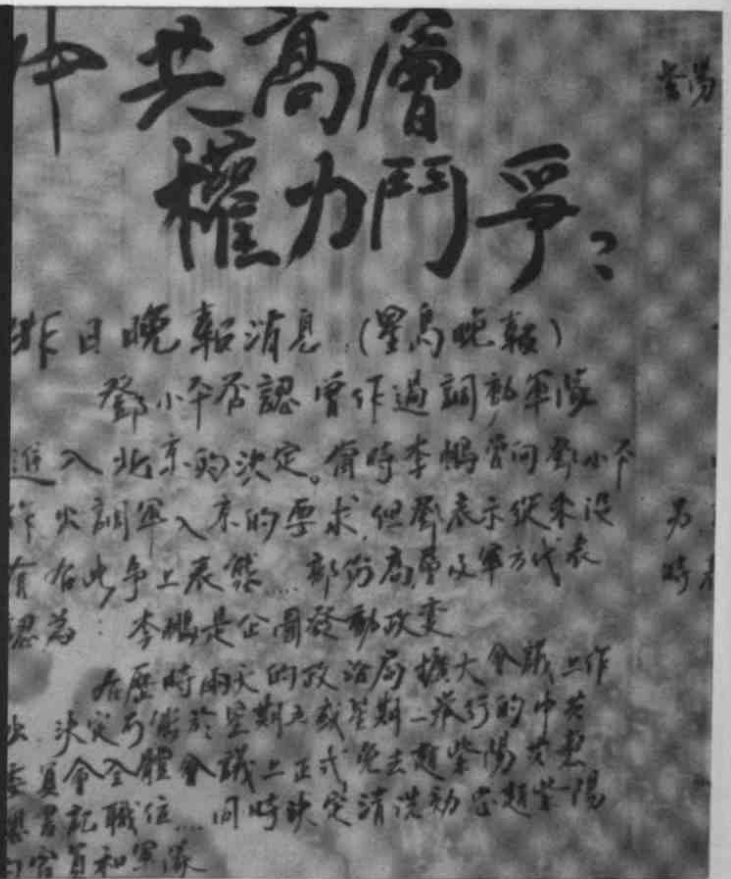 中共高層
權力鬥爭？
昨日晚報消息（星島晚報）
鄧小平否認曾作過調動軍隊
進入北京的決定。當時李鵬曾向鄧小平
作出調軍入京的要求，但鄧表示從來沒
有在此爭上表態...部份高層及軍方代表
認為：李鵬是企圖發動政變
在歷時兩天的政治局擴大會議上作
出決定可能於星期五或星期一舉行的中共
委員會全體會議上正式免去趙紫陽
總書記職位...同時決定清洗効忠趙紫陽
的官員和軍隊
紫陽
時